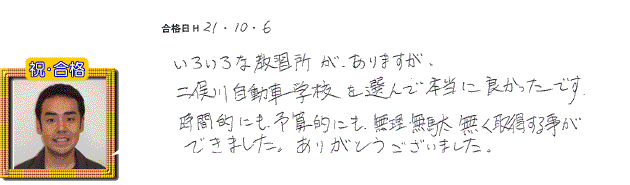 合格日 H 21・10・6
祝・合格
いろいろな教習所が、ありますが、
二俣川自動車学校を選んで本当に良かったです。
時間的にも、予算的にも、無理無駄無く取得する事が
できました。ありがとうございました。